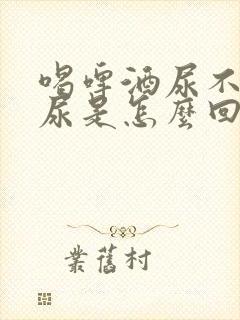 喝啤酒尿不
尿是怎麼回
業舊村